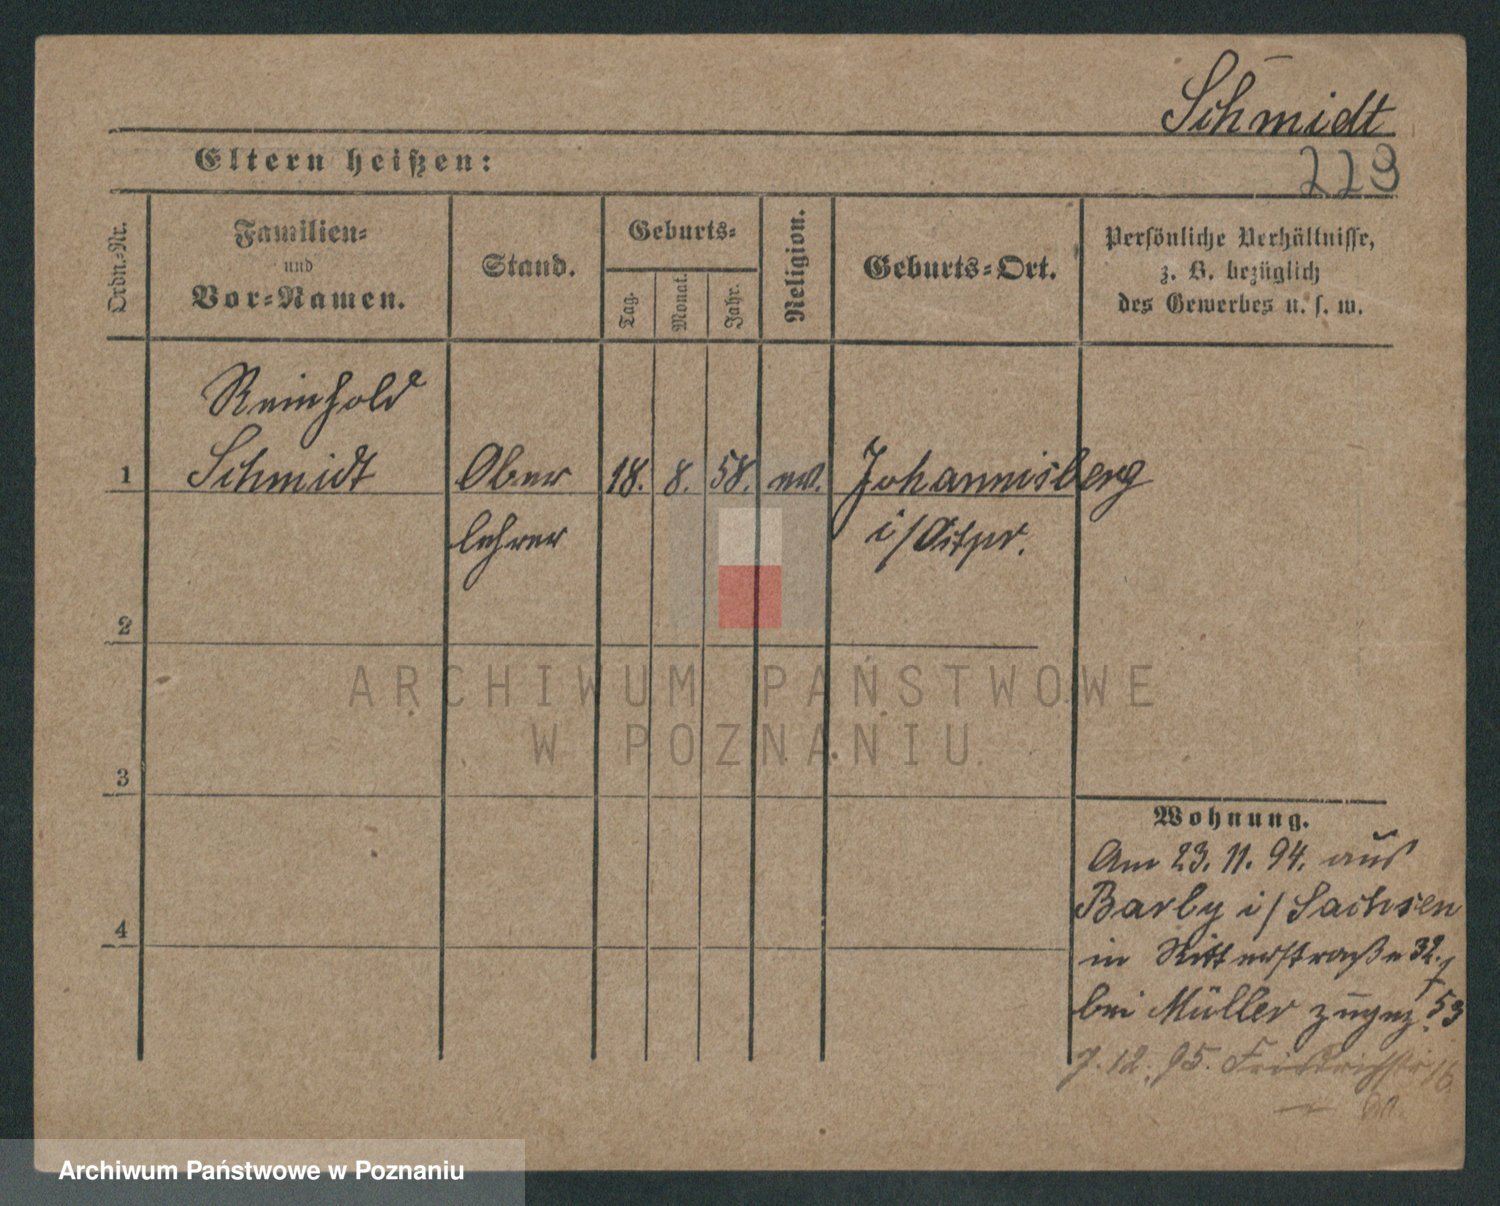 Schmidt
Eltern heißen:
223
Ordn.-Nr.
Familien-
und
Vor-Namen.
Stand.
Geburts-
Tag.
Monat.
Jahr.
Religion.
Geburts-Ort.
Persönliche Verhältnisse,
z. B. bezüglich
des Gewerbes u. s. w.
Reinhold
1 Schmidt Ober 18. 8. 58. ev. Johannisberg
lehrer i/Ostpr.
2
ARCHIWUM PAŃSTWOWE
W POZNANIU
3
Wohnung.
Am 23. 11. 94. aus
Barby i/Sachsen
4
in Ritterstraße 32.
bei Müller zugez. 53
7. 12. 95. Friedrichstr 16
Archiwum Państwowe w Poznaniu